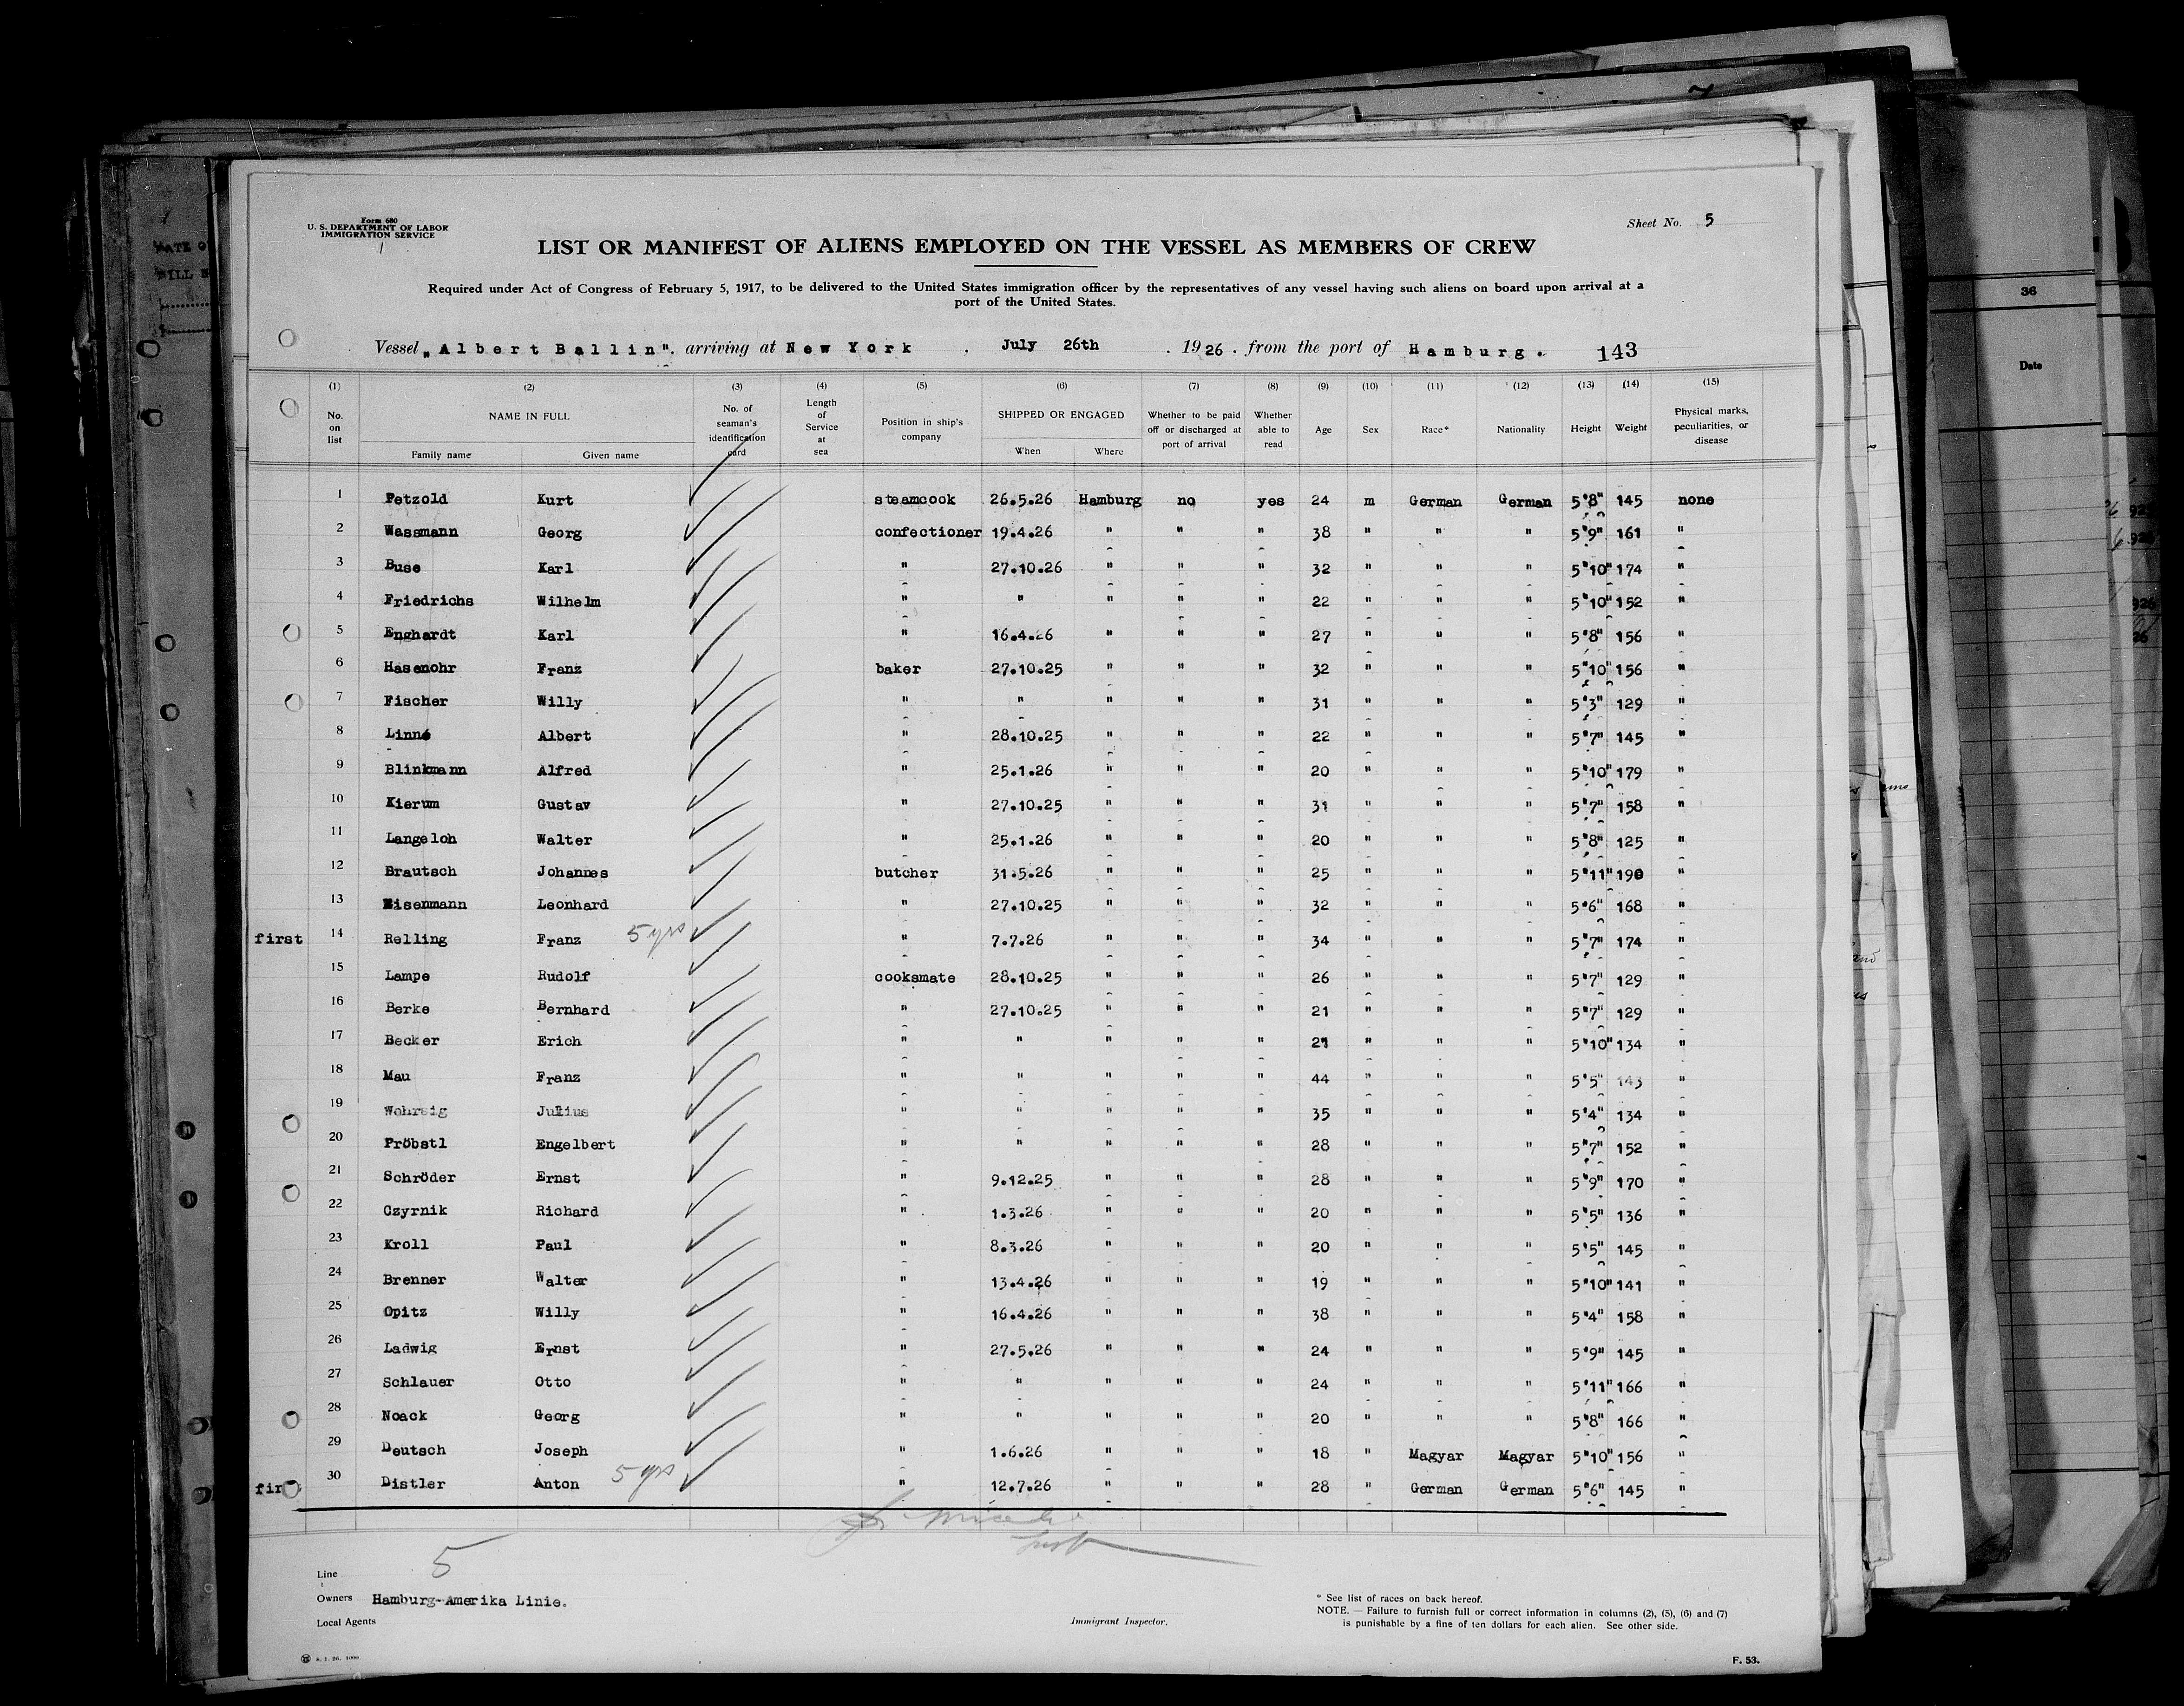 Form 680
U. S. DEPARTMENT OF LABOR
IMMIGRATION SERVICE
Sheet No. 5
LIST OR MANIFEST OF ALIENS EMPLOYED ON THE VESSEL AS MEMBERS OF CREW
Required under Act of Congress of February 5, 1917, to be delivered to the United States immigration officer by the representatives of any vessel having such aliens on board upon arrival at a
port of the United States.
Vessel „Albert Ballin". arriving at New York . July 26th . 1926 . from the port of Hamburg. 143
(1) (2) (3) (4) (5) (6) (7) (8) (9) (10) (11) (12) (13) (14) (15)
No. on list NAME IN FULL Family name Given name No. of seaman's identification card Length of Service at sea Position in ship's company SHIPPED OR ENGAGED When Where Whether to be paid off or discharged at port of arrival Whether able to read Age Sex Race* Nationality Height Weight Physical marks, peculiarities, or disease
1 Petzold Kurt steamcook 26.5.26 Hamburg no yes 24 m German German 5'8" 145 none
2 Wassmann Georg confectioner 19.4.26 " " " 38 " " " 5'9" 161 "
3 Buse Karl " 27.10.26 " " " 32 " " " 5'10" 174 "
4 Friedrichs Wilhelm " " " " " 22 " " " 5'10" 152 "
5 Enghardt Karl " 16.4.26 " " " 27 " " " 5'8" 156 "
6 Hasenohr Franz baker 27.10.25 " " " 32 " " " 5'10" 156 "
7 Fischer Willy " " " " " 31 " " " 5'3" 129 "
8 Linné Albert " 28.10.25 " " " 22 " " " 5'7" 145 "
9 Blinkmann Alfred " 25.1.26 " " " 20 " " " 5'10" 179 "
10 Kierum Gustav " 27.10.25 " " " 31 " " " 5'7" 158 "
11 Langeloh Walter " 25.1.26 " " " 20 " " " 5'8" 125 "
12 Brautsch Johannes butcher 31.5.26 " " " 25 " " " 5'11" 190 "
13 Eisenmann Leonhard " 27.10.25 " " " 32 " " " 5'6" 168 "
first 14 Relling Franz 5 yrs " 7.7.26 " " " 34 " " " 5'7" 174 "
15 Lampe Rudolf cooksmate 28.10.25 " " " 26 " " " 5'7" 129 "
16 Berke Bernhard " 27.10.25 " " " 21 " " " 5'7" 129 "
17 Becker Erich " " " " " 21 " " " 5'10" 134 "
18 Mau Franz " " " " " 44 " " " 5'5" 143 "
19 Wohrsig Julius " " " " " 35 " " " 5'4" 134 "
20 Pröbstl Engelbert " " " " " 28 " " " 5'7" 152 "
21 Schröder Ernst " 9.12.25 " " " 28 " " " 5'9" 170 "
22 Czyrnik Richard " 1.3.26 " " " 20 " " " 5'5" 136 "
23 Kroll Paul " 8.3.26 " " " 20 " " " 5'5" 145 "
24 Brenner Walter " 13.4.26 " " " 19 " " " 5'10" 141 "
25 Opitz Willy " 16.4.26 " " " 38 " " " 5'4" 158 "
26 Ladwig Ernst " 27.5.26 " " " 24 " " " 5'9" 145 "
27 Schlauer Otto " " " " " 24 " " " 5'11" 166 "
28 Noack Georg " " " " " 20 " " " 5'8" 166 "
29 Deutsch Joseph " 1.6.26 " " " 18 " Magyar Magyar 5'10" 156 "
30 Distler Anton 5 yrs " 12.7.26 " " " 28 " German German 5'6" 145 "
5
Line
Owners Hamburg-Amerika Linie.
Local Agents
Immigrant Inspector.
* See list of races on back hereof.
NOTE. — Failure to furnish full or correct information in columns (2), (5), (6) and (7)
is punishable by a fine of ten dollars for each alien. See other side.
F. 53.
36
Date